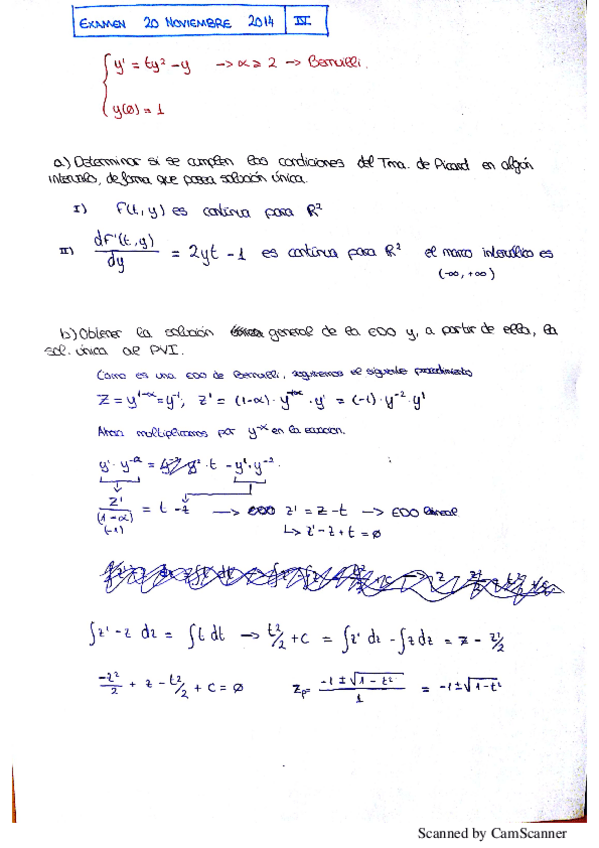 EXAMEN 20 NOVIEMBRE 2014 IV.
y' = ty² - y → α = 2 → Bernulli.
y(0) = 1
a) Determinar si se cumplen las condiciones del Tma. de Picard en algún
intervalo, de forma que posea solución única.
I) F(t, y) es continua para R²
II) dF'(t,y)/dy = 2yt - 1 es continua para R² el marco intervalico es
(-∞, +∞)
b) Obtener la solución general de la EDO y, a partir de ella, la
sol. única al PVI.
Como es una EDO de Bernulli, seguiremos el siguiente procedimiento
Z = y^{1-α} = y^{-1}; Z' = (1-α) · y^{-α} · y' = (-1) · y^{-2} · y'
Ahora multiplicamos por y^{-α} en la ecuacion.
y' · y^{-2} = y^{-2} y² · t - y¹ · y^{-2}.
Z'/(1-α) = t - z → z' = z - t → EDO lineal
(-1) ↳ z' - z + t = 0
∫z' - z dz = ∫t dt → t²/2 + c = ∫z' dz - ∫z dz = z - z²/2
-z²/2 + z - t²/2 + c = 0 Zp = (-1 ± √(1 - t²))/1 = -1 ± √(1 - t²)
Scanned by CamScanner